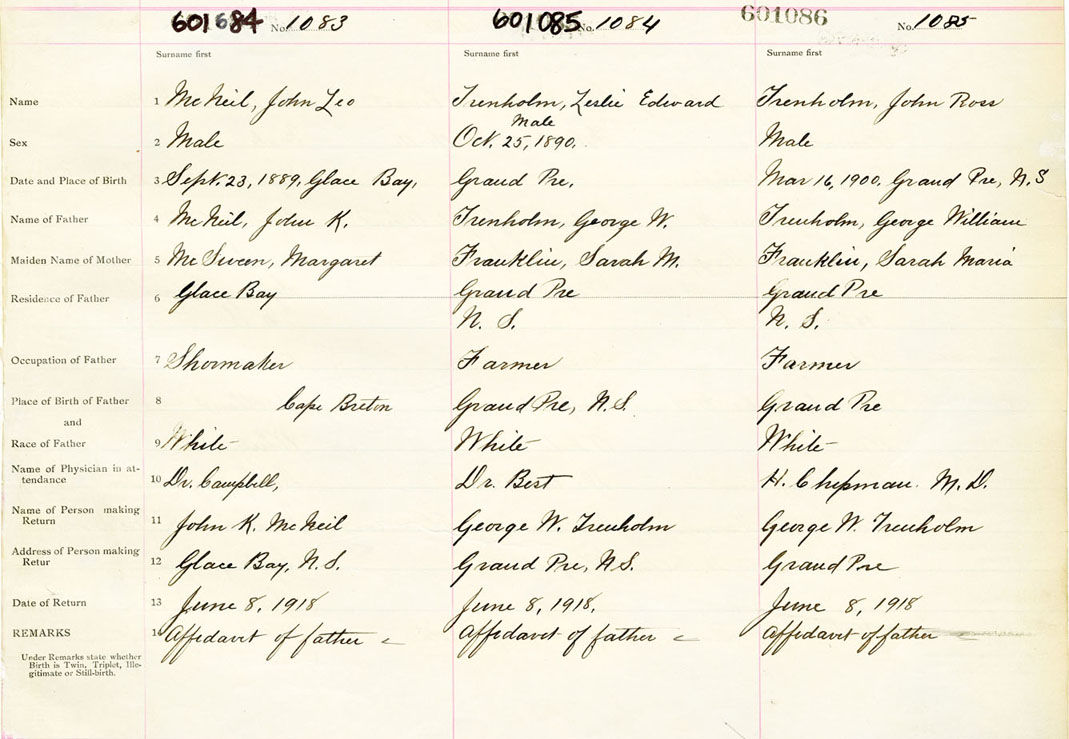 601684 No. 1083 601085 No. 1084 601086 No. 1085
Surname first Surname first Surname first
Name 1 McNeil, John Leo Trenholm, Leslie Edward Trenholm, John Ross
Male
Sex 2 Male Oct. 25, 1890. Male
Date and Place of Birth 3 Sept. 23, 1889, Glace Bay, Grand Pre. Mar 16, 1900, Grand Pre, N.S
Name of Father 4 McNeil, John K. Trenholm, George W. Trenholm, George William
Maiden Name of Mother 5 McSween, Margaret Franklin, Sarah M. Franklin, Sarah Maria
Residence of Father 6 Glace Bay Grand Pre Grand Pre
N. S. N. S.
Occupation of Father 7 Shormaker Farmer Farmer
Place of Birth of Father 8 Cape Breton Grand Pre, N.S. Grand Pre
and
Race of Father 9 White White White
Name of Physician in at-
tendance 10 Dr. Campbell, Dr. Bert H. Chipman. M.D.
Name of Person making
Return 11 John K. McNeil George W. Trenholm George W. Trenholm
Address of Person making
Retur 12 Glace Bay, N.S. Grand Pre, N.S. Grand Pre
Date of Return 13 June 8, 1918 June 8, 1918. June 8, 1918
REMARKS 14 Affidavit of father Affidavit of father Affidavit of father
Under Remarks state whether
Birth is Twin, Triplet, Ille-
gitimate or Still-birth.